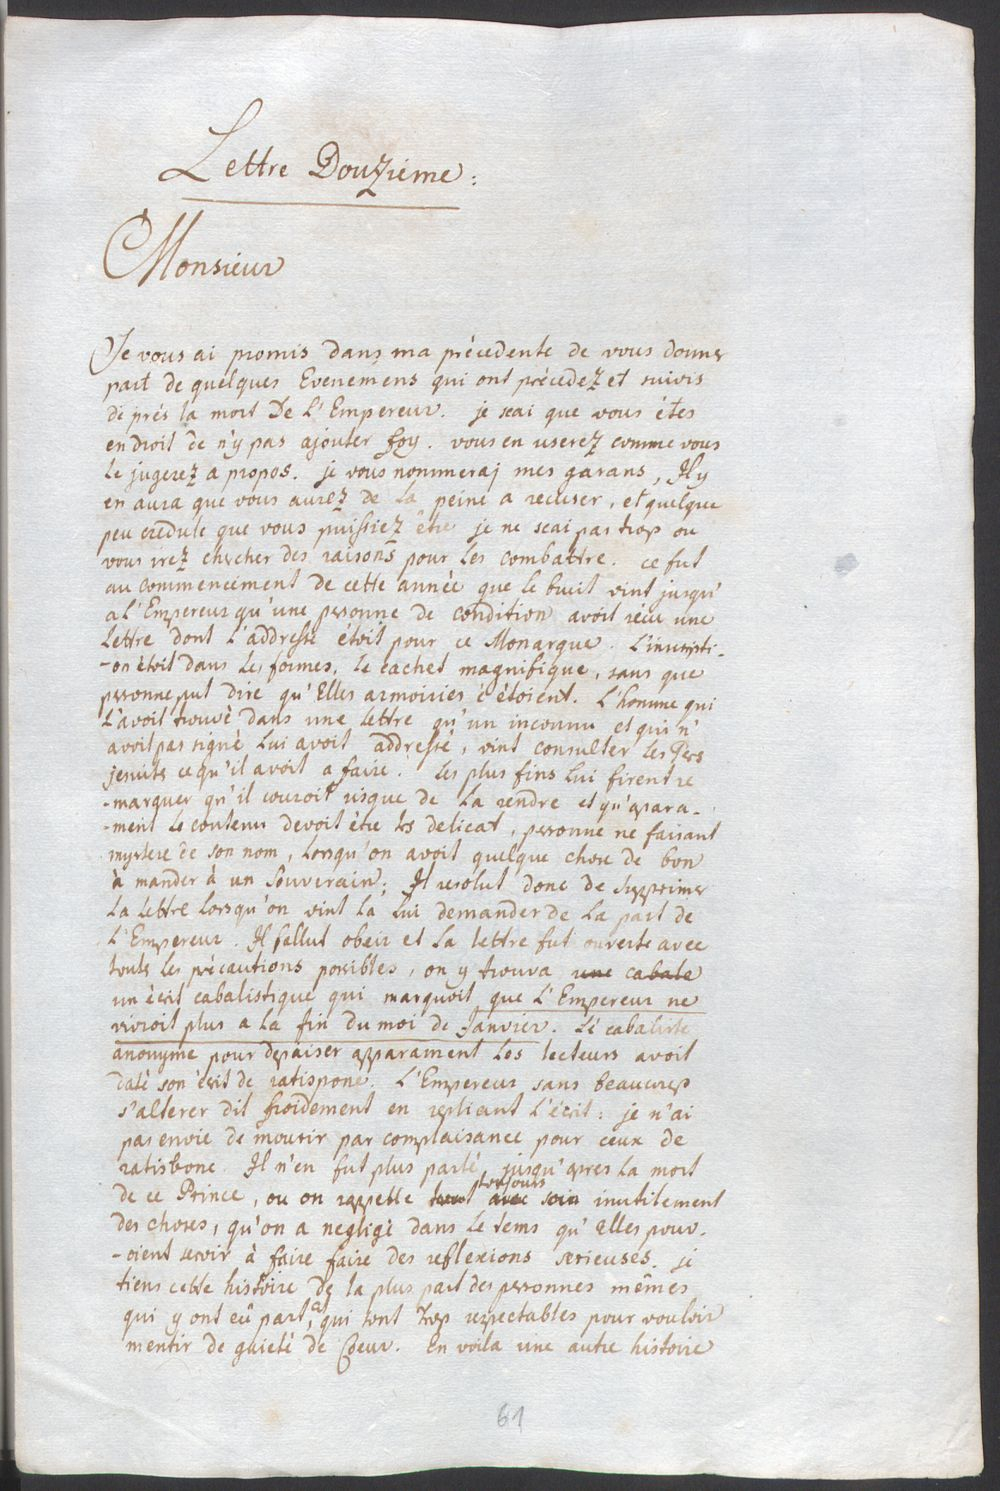 Lettre Douziéme :
Monsieur
Je vous ai promis dans ma précedente de vous donner
part de quelques Evenemens qui ont précedez et suivis
de prés la mort De L'Empereur. je scai que vous étes
en droit de n'y pas ajouter foy. vous en userez comme vous
le jugerez a propos. je vous nommeraj mes garans, Il y
en aura que vous aurez de La peine a recuser, et quelque
peu credule que vous puissiez être je ne scai pas trop ou
vous irez chercher des raisons pour les combattre. ce fut
au commencement de cette année que le bruit vint jusqu'
a L'Empereur qu'une personne de condition avoit récu une
Lettre dont L'addresse étoit pour ce Monarque. L'inscripti-
-on étoit dans les formes, le cachet magnifique, sans que
personne put dire qu'Elles armoiries c'étoient. L'homme qui
L'avoit trouvé dans une lettre qu'un inconnu et qui n'
avoit pas signé Lui avoit addressé, vint consulter les Pers
jesuits ce qu'il avoit a faire. Les plus fins Lui firent re
-marquer qu'il couroit risque de La rendre et qu'apara-
-ment Le contenu devoit étre trs delicat, personne ne faisant
mystere de son nom, Lorsqu'on avoit quelque chose de bon
à mander à un Souverain; Il resolut donc de supprimer
La Lettre Lorsqu'on vint La Lui demander de La part de
L'Empereur. Il fallut obeir et La lettre fut ouverte avec
touts Les précautions possibles, on y trouva une cabale
un écrit cabalistique qui marquoit que L'Empereur ne
vivroit plus a La fin du moi de Janvier. Le cabaliste
anonyme pour depaiser apparament Les lecteurs avoit
daté son écrit de ratispone. L'Empereur sans beaucoup
s'alterer dit froidement en repliant L'écrit : je n'ai
pas envie de mourir par complaisance pour ceux de
ratisbone. Il n'en fut plus parlé, jusqu'apres La mort
de ce Prince, ou on rappelle tout avec soin toujours inutilement
des choses, qu'on a negligé dans Le tems qu'Elles pouv-
-oient servir à faire faire des reflexions serieuses. je
tiens cette histoire de la plus part des personnes mêmes
qui y ont eû part, et qui sont trop respectables pour vouloir
mentir de gaieté de Coeur. En voila une autre histoire
61